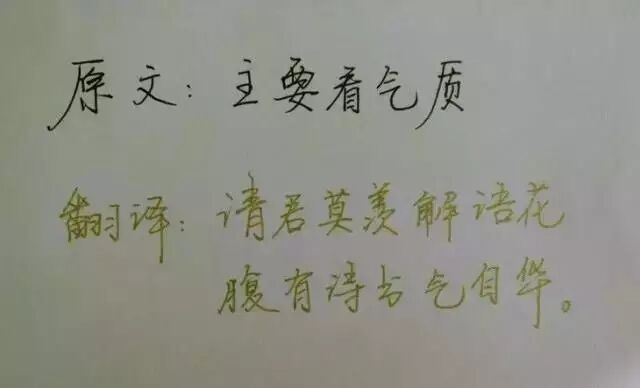 原文：主要看气质
翻译：请君莫羡解语花
腹有诗书气自华。